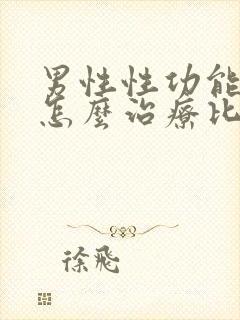 男性性功能
怎麼治療比
徐飛